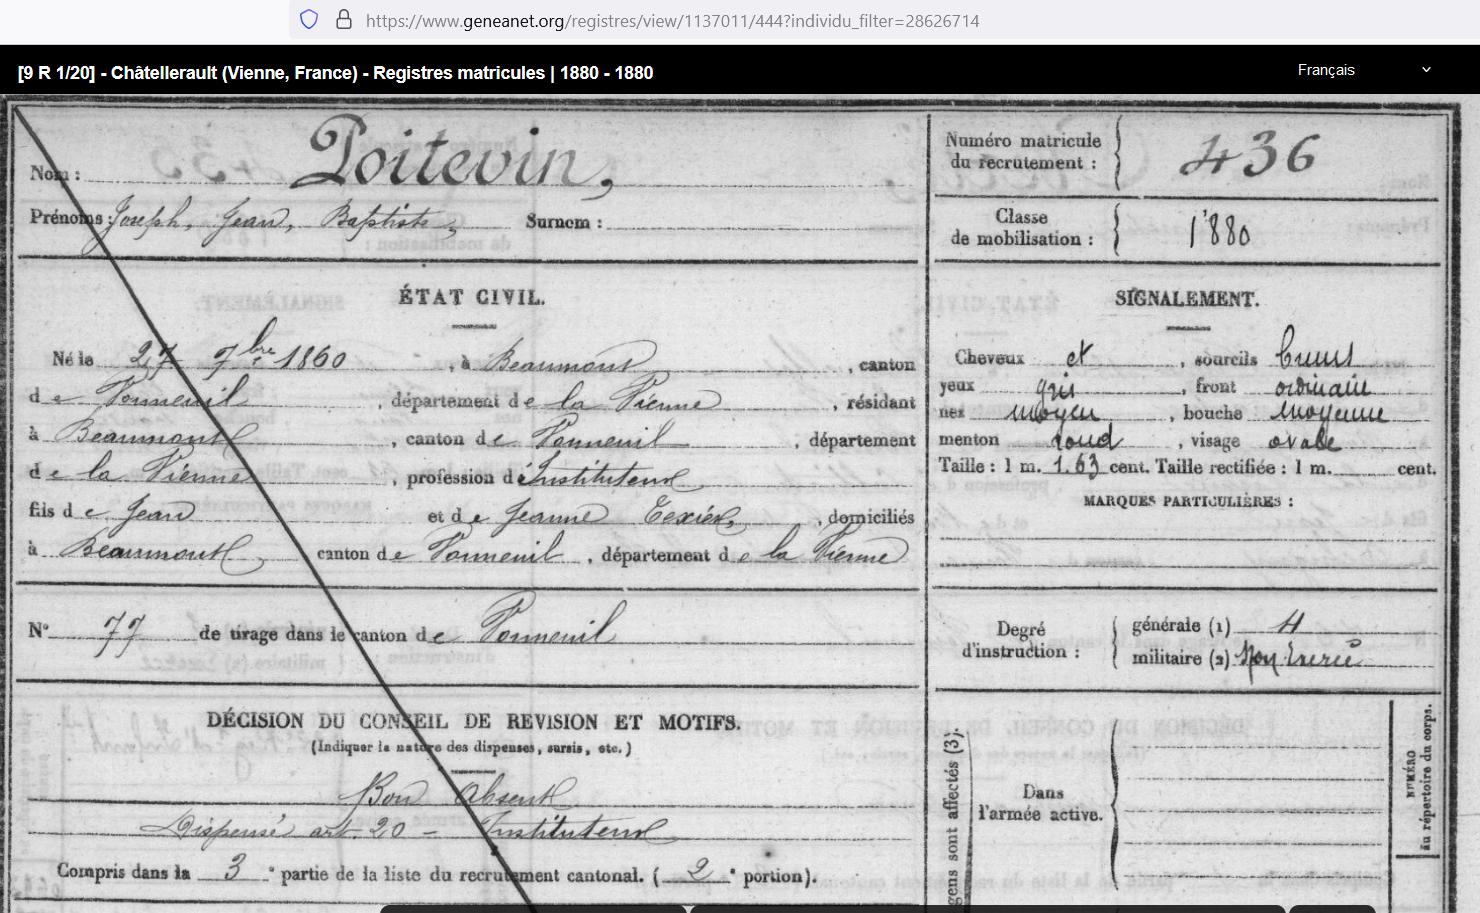 https://www.geneanet.org/registres/view/1137011/444?individu_filter=28626714
[9 R 1/20] - Châtellerault (Vienne, France) - Registres matricules | 1880 - 1880
Français
Nom : Poitevin,
Prénoms : Joseph, Jean, Baptiste,
Surnom :
Numéro matricule
du recrutement : 436
Classe
de mobilisation : 1880
ÉTAT CIVIL.
Né le 27 7bre 1860, à Beaumont, canton
de Vonneuil, département de la Vienne, résidant
à Beaumont, canton de Vonneuil, département
de la Vienne, profession d'Instituteur
fils de Jean et de Jeanne Texier, domiciliés
à Beaumont canton de Vonneuil, département de la Vienne
N° 77 de tirage dans le canton de Vonneuil
SIGNALEMENT.
Cheveux et, sourcils bruns
yeux gris, front ordinaire
nez moyen, bouche moyenne
menton rond, visage ovale
Taille : 1 m. 1.63 cent. Taille rectifiée : 1 m. cent.
MARQUES PARTICULIÈRES :
Degré
d'instruction :
générale (1)
militaire (2) Non Exercé
DÉCISION DU CONSEIL DE REVISION ET MOTIFS.
(Indiquer la nature des dispenses, sursis, etc.)
Bon Absent
Dispensé art. 20 - Instituteur
Compris dans la 3e partie de la liste du recrutement cantonal. ( 2e portion).
gens sont affectés (3).
Dans
l'armée active.
NUMÉRO
au répertoire du corps.